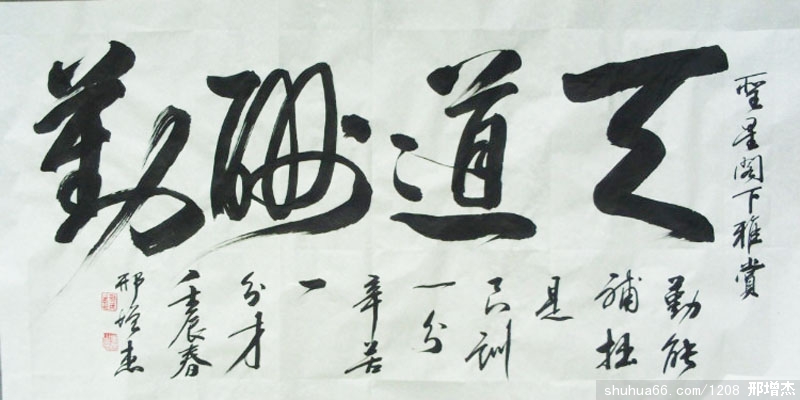 聖星閣下雅賞
天道酬勤
勤能
補拙
是
良訓
一分
辛苦
一
分才
壬辰春
邢增杰
shuhua66.com/1208 邢增杰